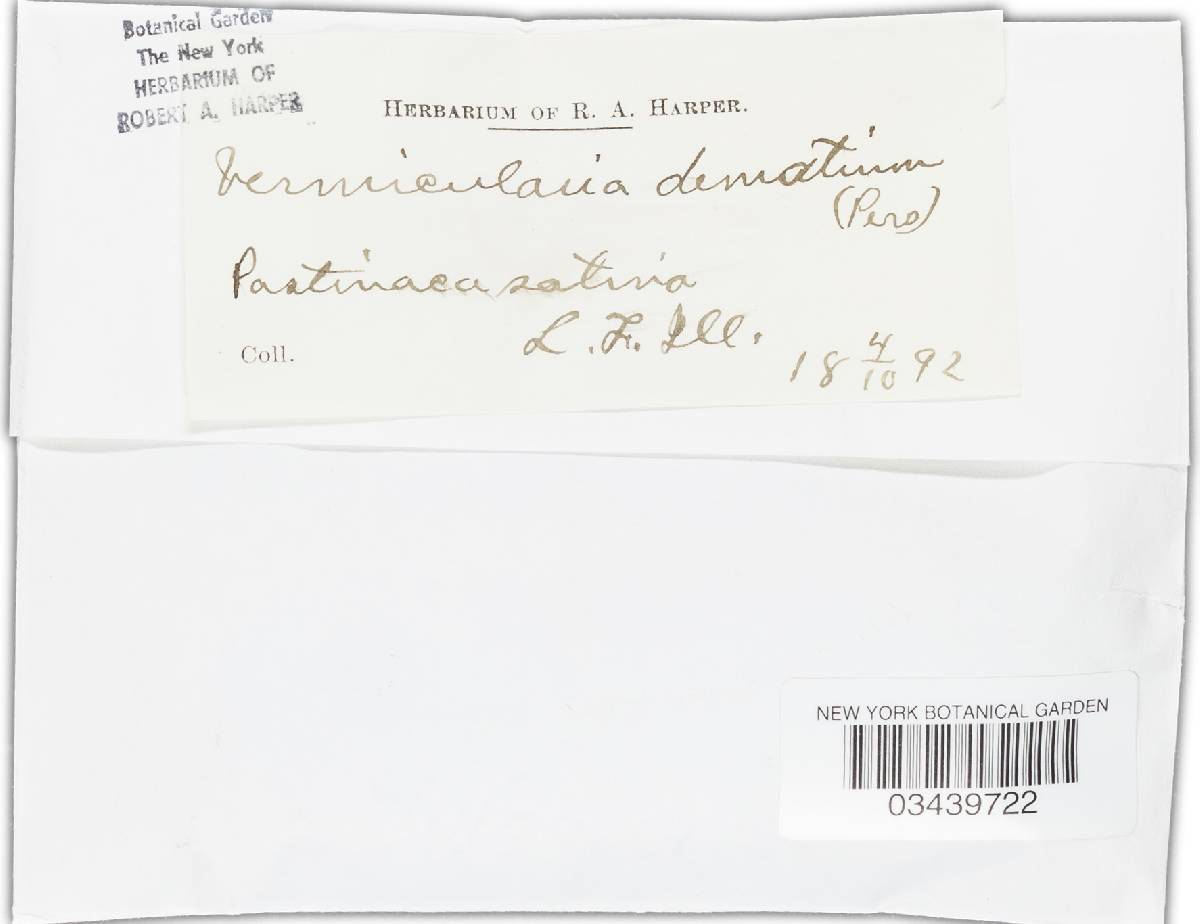 Botanical Garden
The New York
HERBARIUM OF
ROBERT A. HARPER
HERBARIUM OF R. A. HARPER.
Vermicularia dematium
(Pers)
Pastinaca sativa
L. F. Ill.
Coll.
18 4/10 92
NEW YORK BOTANICAL GARDEN
03439722